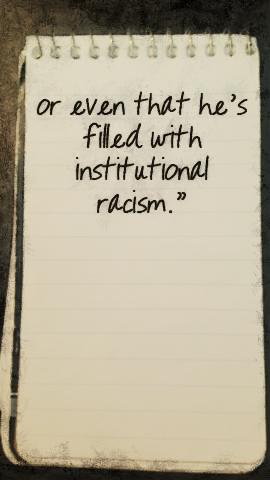 or even that he's
filled with
institutional
racism.”